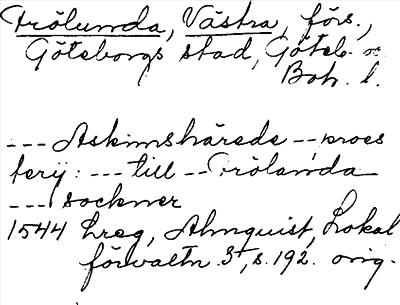 Frölunda, Västra, förs.,
Göteborgs stad, Göteb. o.
Boh. l.
--- Askimshärede -- proes
terij: --- till -- Frölanda
--- sockner
1544 Lreg, Almquist, Lokal
förvaltn. 3, s. 192. orig.